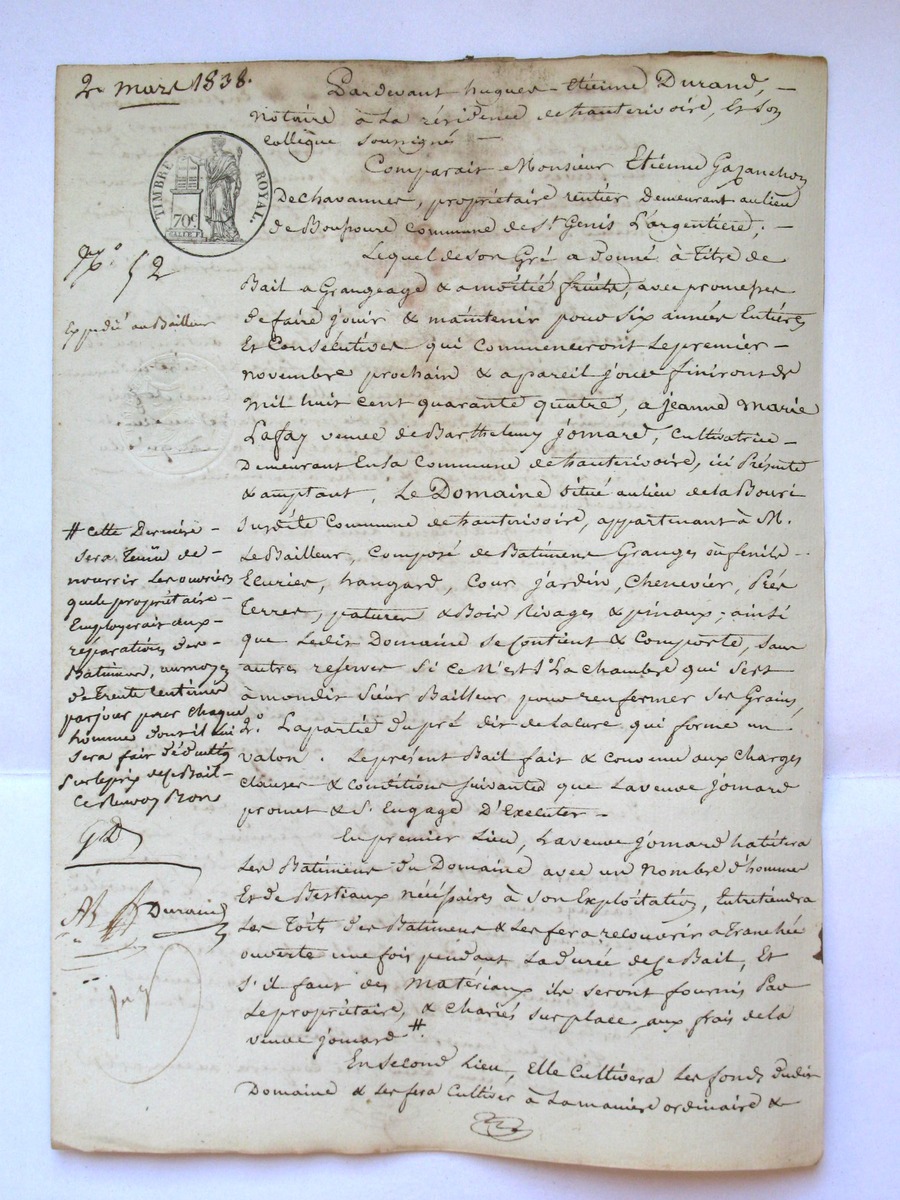 2 mars 1838.
Pardevant hugues-Etienne Durand,
Notaire à La résidence de hauterivoire, Et son
collègue soussignés
Comparait Monsieur Etienne Gazanchon
Dechavannes, propriétaire rentier demeurant au lieu
de Boupoure commune de St Genis L'argentiere;
Lequel de son Gré a donné à titre de
Bail a Grangeage & a moitiée fruits, avec promesses
de faire jouir & maintenir pour six années Entières
Et Consécutives qui commenceront Le premier
novembre prochain & a pareil jour finiront de
Mil huit cent quarante quatre, a jeanne Marie
Lafay veuve de Barthelemy jomard, Cultivatrice
Demeurant En la Commune de hauterivoire, ici Présente
& acceptant, Le Domaine situé au lieu de la Bouri
Susdite Commune de hauterivoire, appartenant à M.
Le Bailleur, composé de Batimens Granges ou fenils
Ecuries, hangard, Cour jardin, Chenevier, Prés
terres, patures & Bois Rivages & pinaux; ainsi
que Ledit Domaine se Contient & Comporte, sans
autres reserves Si ce N'est 1° La chambre qui sert
à mondit sieur Bailleur pour renfermer ses Grains,
2°. La partie du pré dit de la cure qui forme un
valon. Le présent Bail fait & convenu aux Charges
clauses & conditions suivantes que La veuve jomard
promet & S'Engage D'Exécuter
En premier Lieu, La veuve jomard habitera
Les Batimens du Domaine avec un Nombre d'hommes
Et de Bestiaux nécéssaires à son Exploitation, Entretiendra
Les Toits des Batimens & Les fera recouvrir a Tranchée
ouverte une fois pendant La durée de ce Bail, Et
S'il faut des Matériaux ils seront fournis Par
Le propriétaire, & chariés sur place, aux frais de la
veuve jomard #.
En Second Lieu, Elle Cultivera Les fonds dudit
Domaine & Les fera Cultiver à La manière ordinaire &
TIMBRE ROYAL.
70c
No. 52
Expédié au Bailleur
# cette Dernière
sera Tenüe de
nourrir Les ouvriers
que le propriétaire
Employerait aux
réparations des
Batimens, au moyen
de Trente Centimes
par jour pour chaque
homme dont il lui
sera fait déduction
sur le prix de ce Bail
Ce Renvoy Bon
GD
Durand